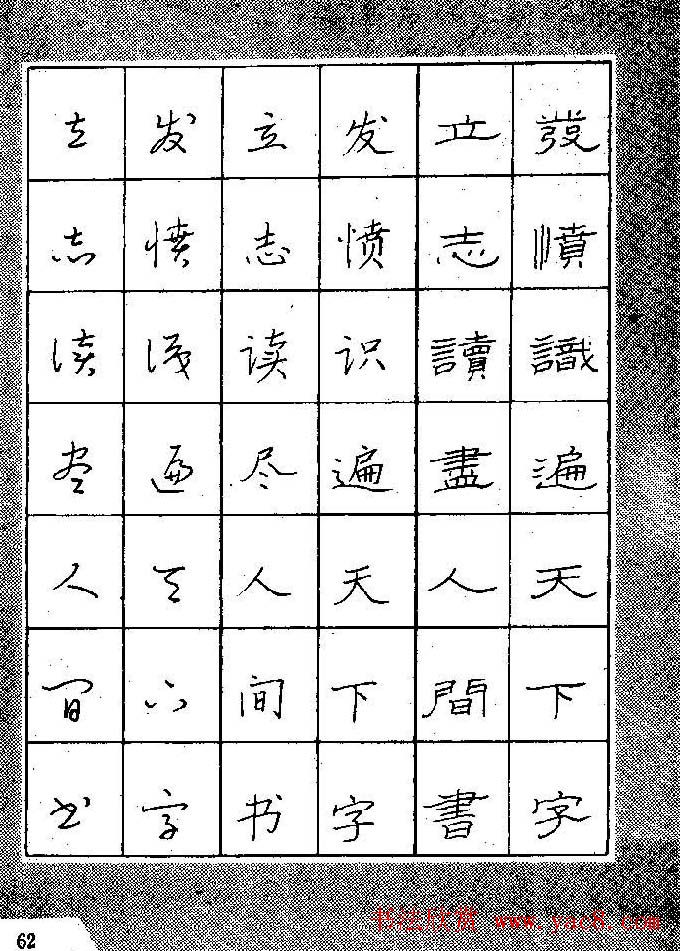 發憤識遍天下字
立志讀盡人間書
发愤识遍天下字
立志读尽人间书
发愤识遍天下字
立志读尽人间书
62
书法欣赏 www.yac8.com